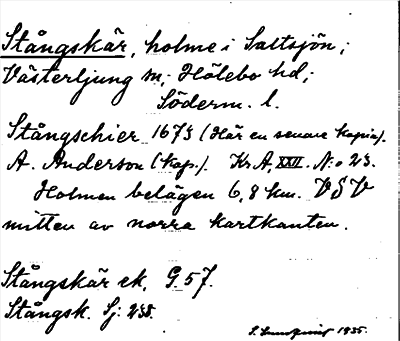 Stångskär, holme i Saltsjön;
Västerljung sn; Hölebo hd;
Söderm. l.
Stångschier 1675 (Här en senare kopia).
A. Anderson (kop.). Kr.A, XXII. N:o 23.
Holmen belägen 6,8 km. VSV
mitten av norra kartkanten.
Stångskär ek, G. 57.
Stångsk. Sj: 238.
1935.